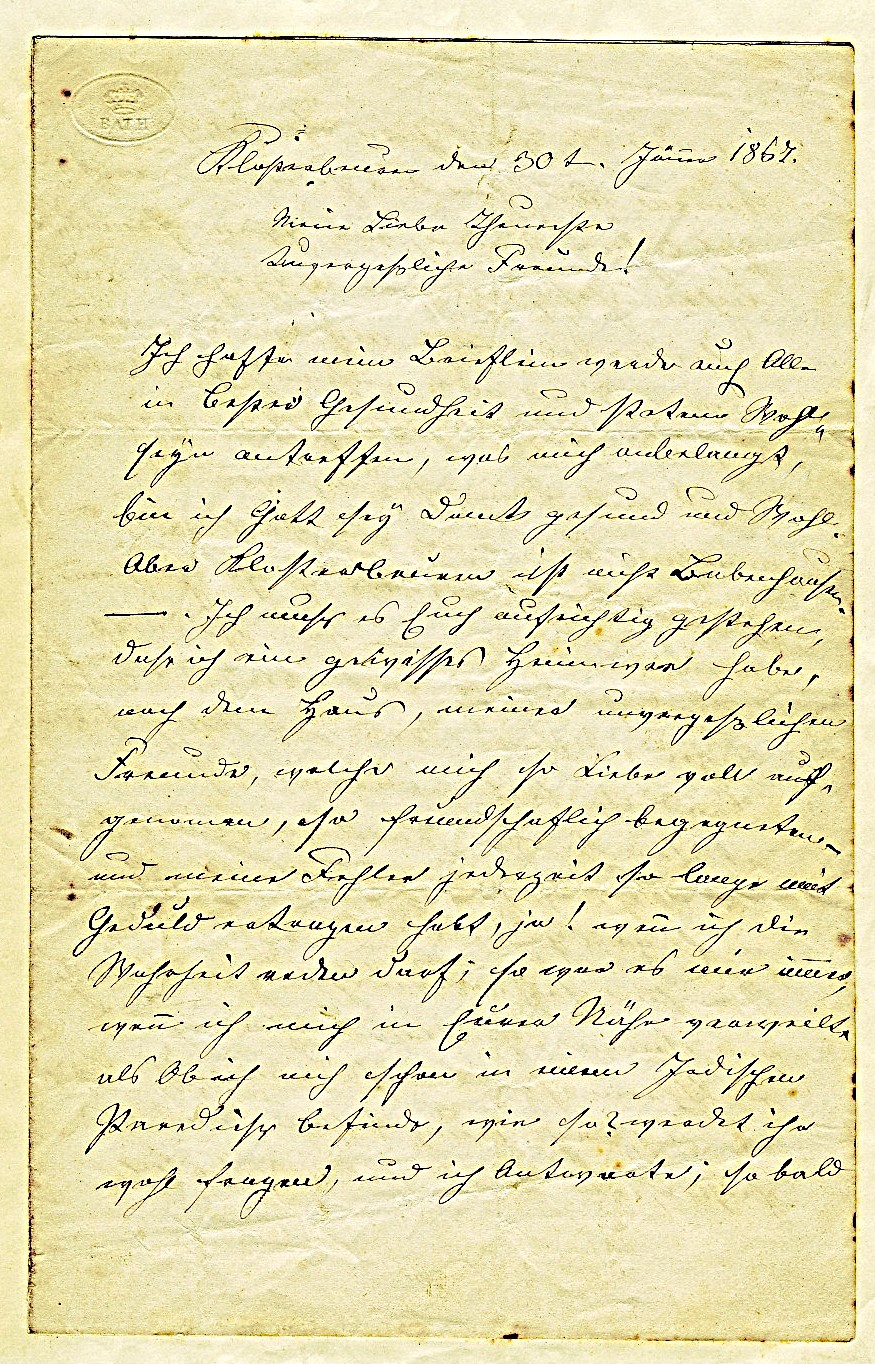 BATH
Klosterbeuren den 30t. Jäner 1867.
Meine Liebe Theuerste
Unvergeßliche Freunde!
Ich hoffe mein Brieflein werde euch Alle
in bester Gesundheit und stetem Wohl„
seyn antreffen, was mich anbelangt,
bin ich Gott sey Dank gesund und Wohl.
Aber Klosterbeuren ist nicht Babenhausen
—. Ich muß es Euch aufrichtig gestehen,
daß ich ein gewisses Heimweh habe,
nach dem Haus, meiner unvergeßlichen
Freunde, welche mich so Liebe voll auf„
genomen, so freundschaftlich begegneten—
und meine Fehler jederzeit so lange mit
Geduld ertragen habt, ja! wen̄ ich die
Wahrheit reden darf; so war es mir im̄er,
wen̄ ich mich in Eurer Nähe verweilte
als Ob ich mich schon in einem Irdischen
Paradiese befinde, wie so? werdet ihr
wohl fragen, und ich Antworte; so bald